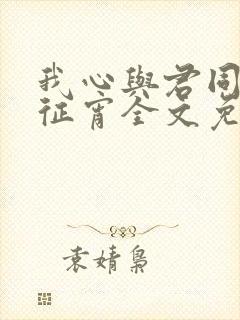 我心与君同
征宵全文免
袁婧枭